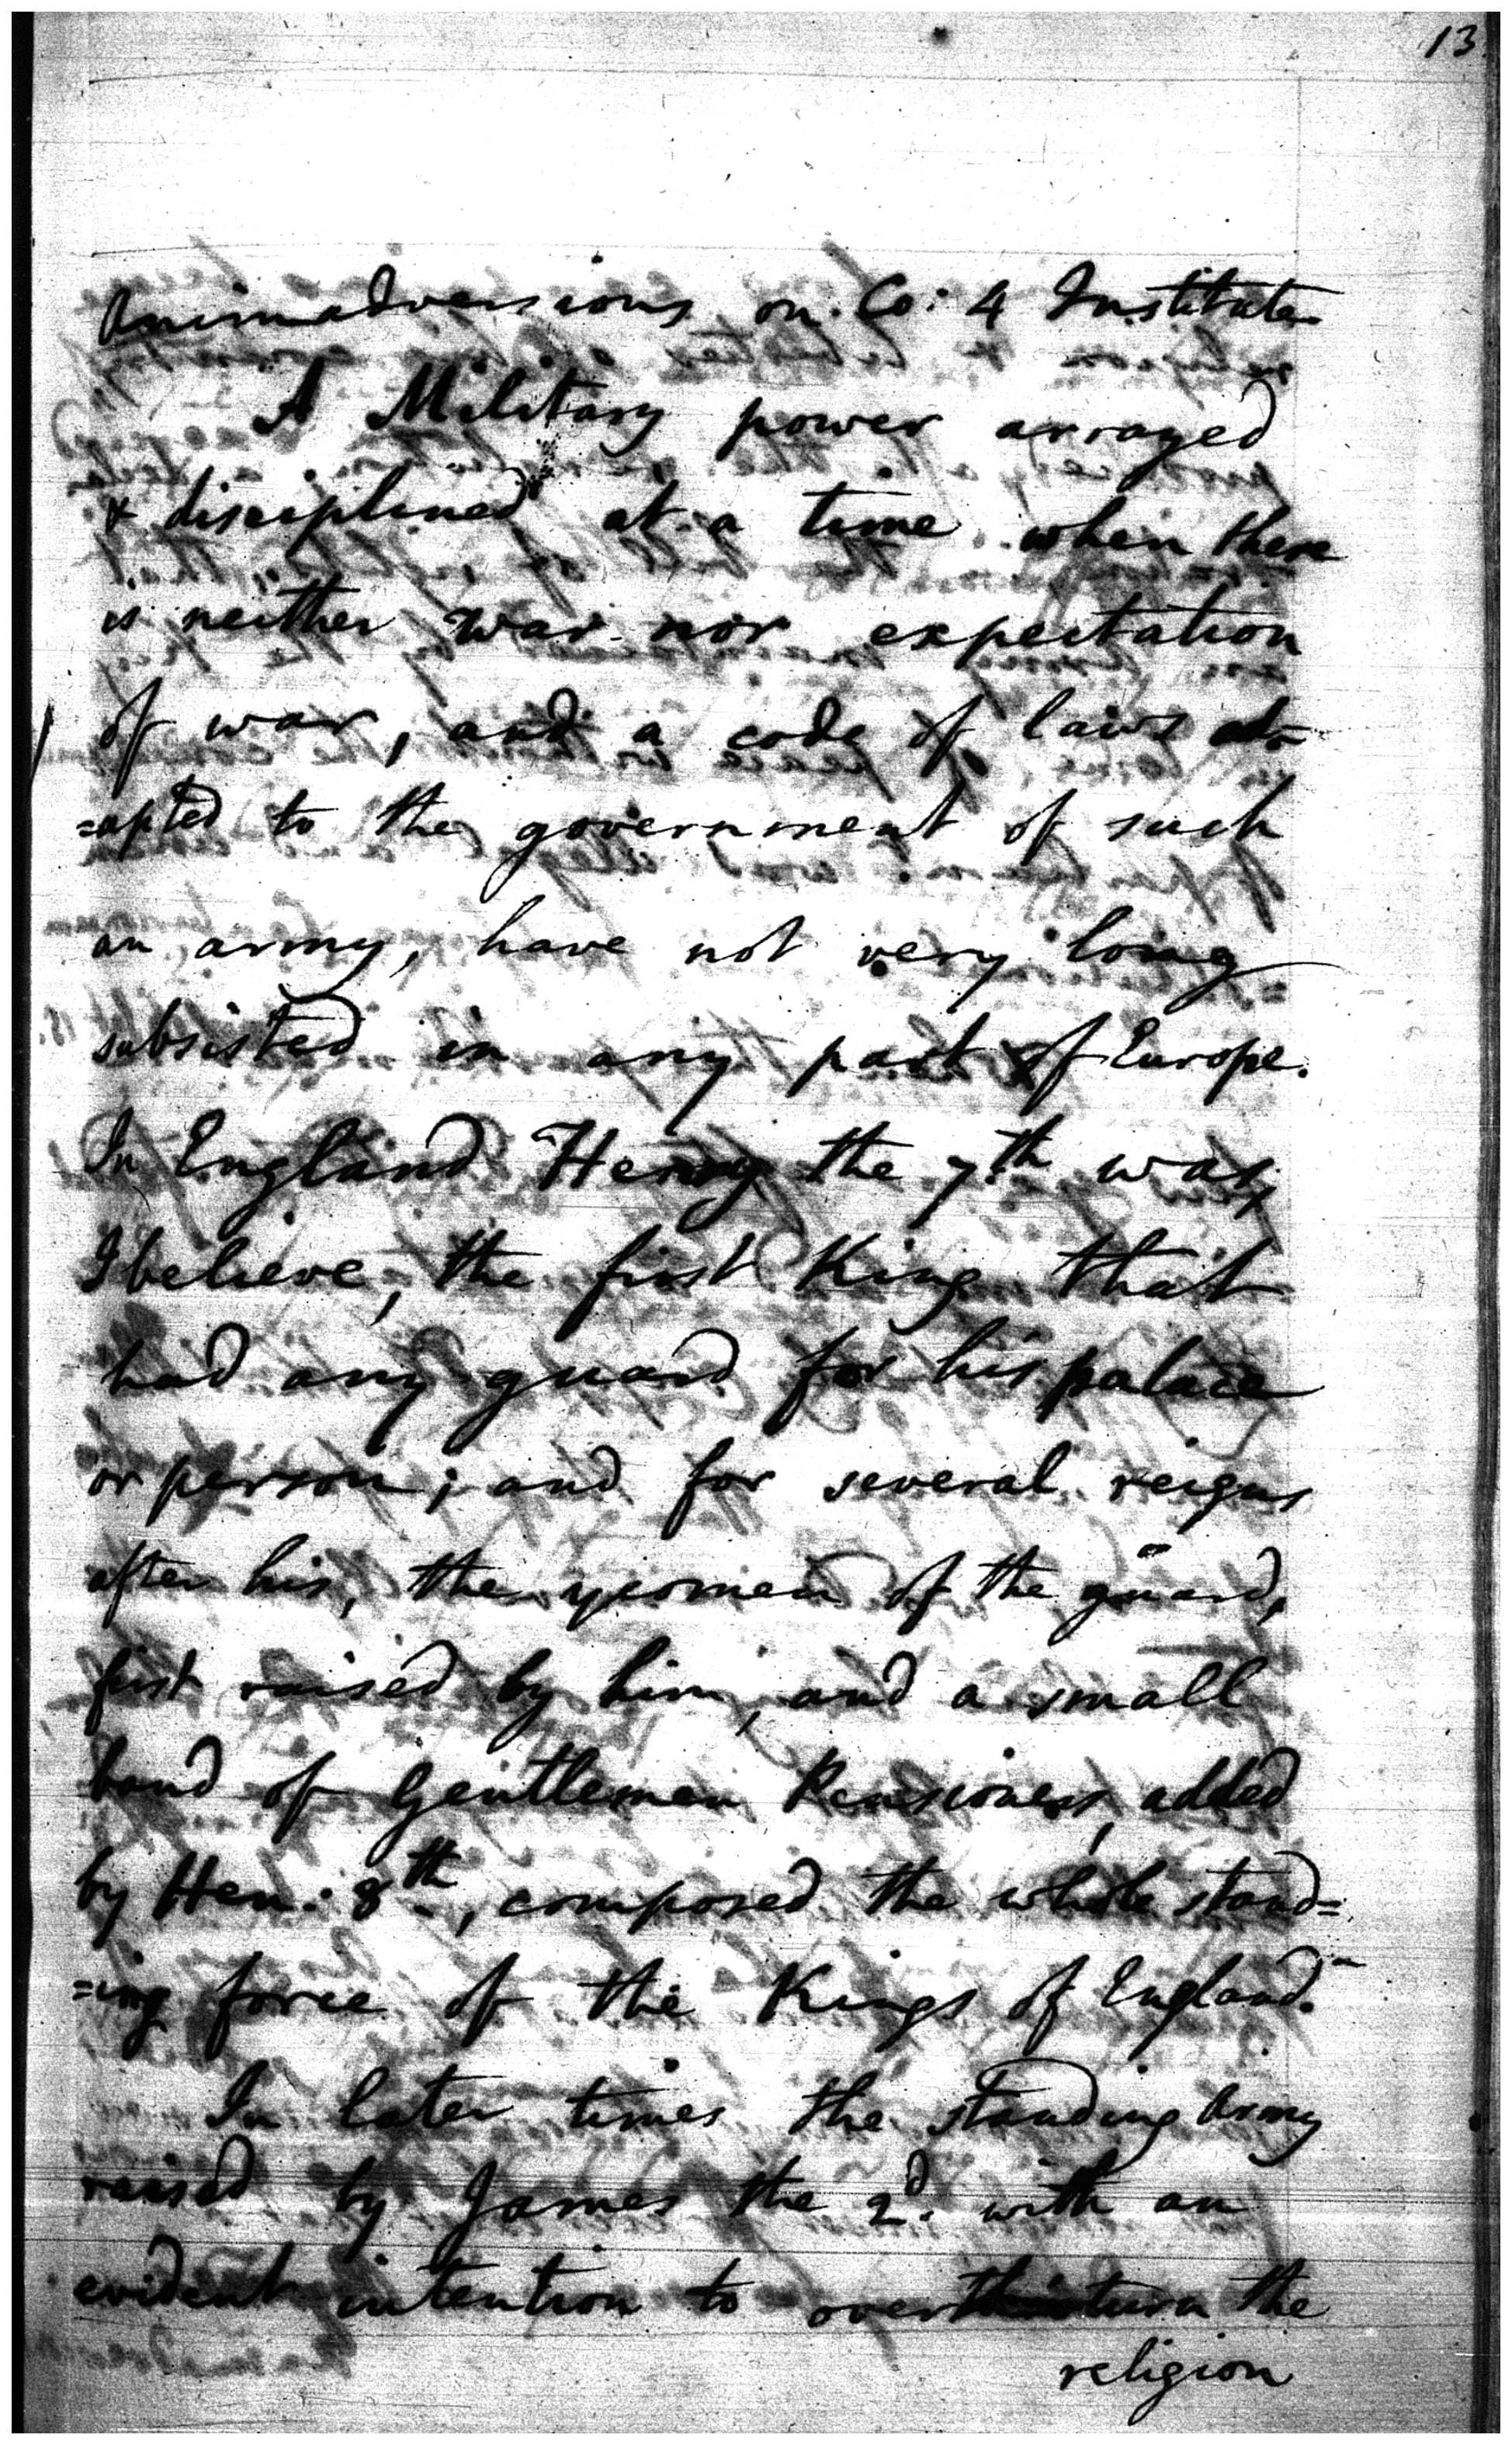 13
Animadversions on Co: 4 Institute
A Military power arrayed
& disciplined at a time when there
is neither war nor expectation
of war, and a code of laws ad-
=apted to the government of such
an army, have not very long
subsisted in any part of Europe.
In England Henry the 7th was,
I believe, the first King that
had any guard for his palace
or person; and for several reigns
after his, the yeomen of the guard,
first raised by him, and a small
band of Gentlemen Pensioners, added
by Hen: 8th, composed the whole stand=
=ing force of the Kings of England.
In later times the standing Army
raised by James the 2d. with an
evident intention to overturn the
religion